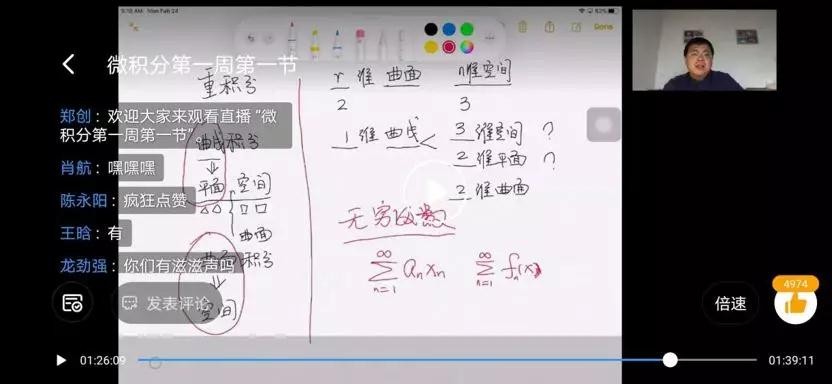 9:18 AM Mon Feb 24
62%
Done
微积分第一周第一节
重积分
郑创：欢迎大家来观看直播“微
积分第一周第一节”。
曲线积分
肖航：嘿嘿嘿
平面 空间
陈永阳：疯狂点赞
曲面
王晗：有
龙劲强：你们有滋滋声吗
曲面积分
空间
r 维 曲面 n维空间
2 3
1 维 曲线 < 3 维空间 ?
2 维平面 ?
2 维曲面
无穷级数
∞ ∑ n=1 aₙxₙ ∞ ∑ n=1 fₙ(x)
发表评论
倍速
4974
01:26:09
01:39:11